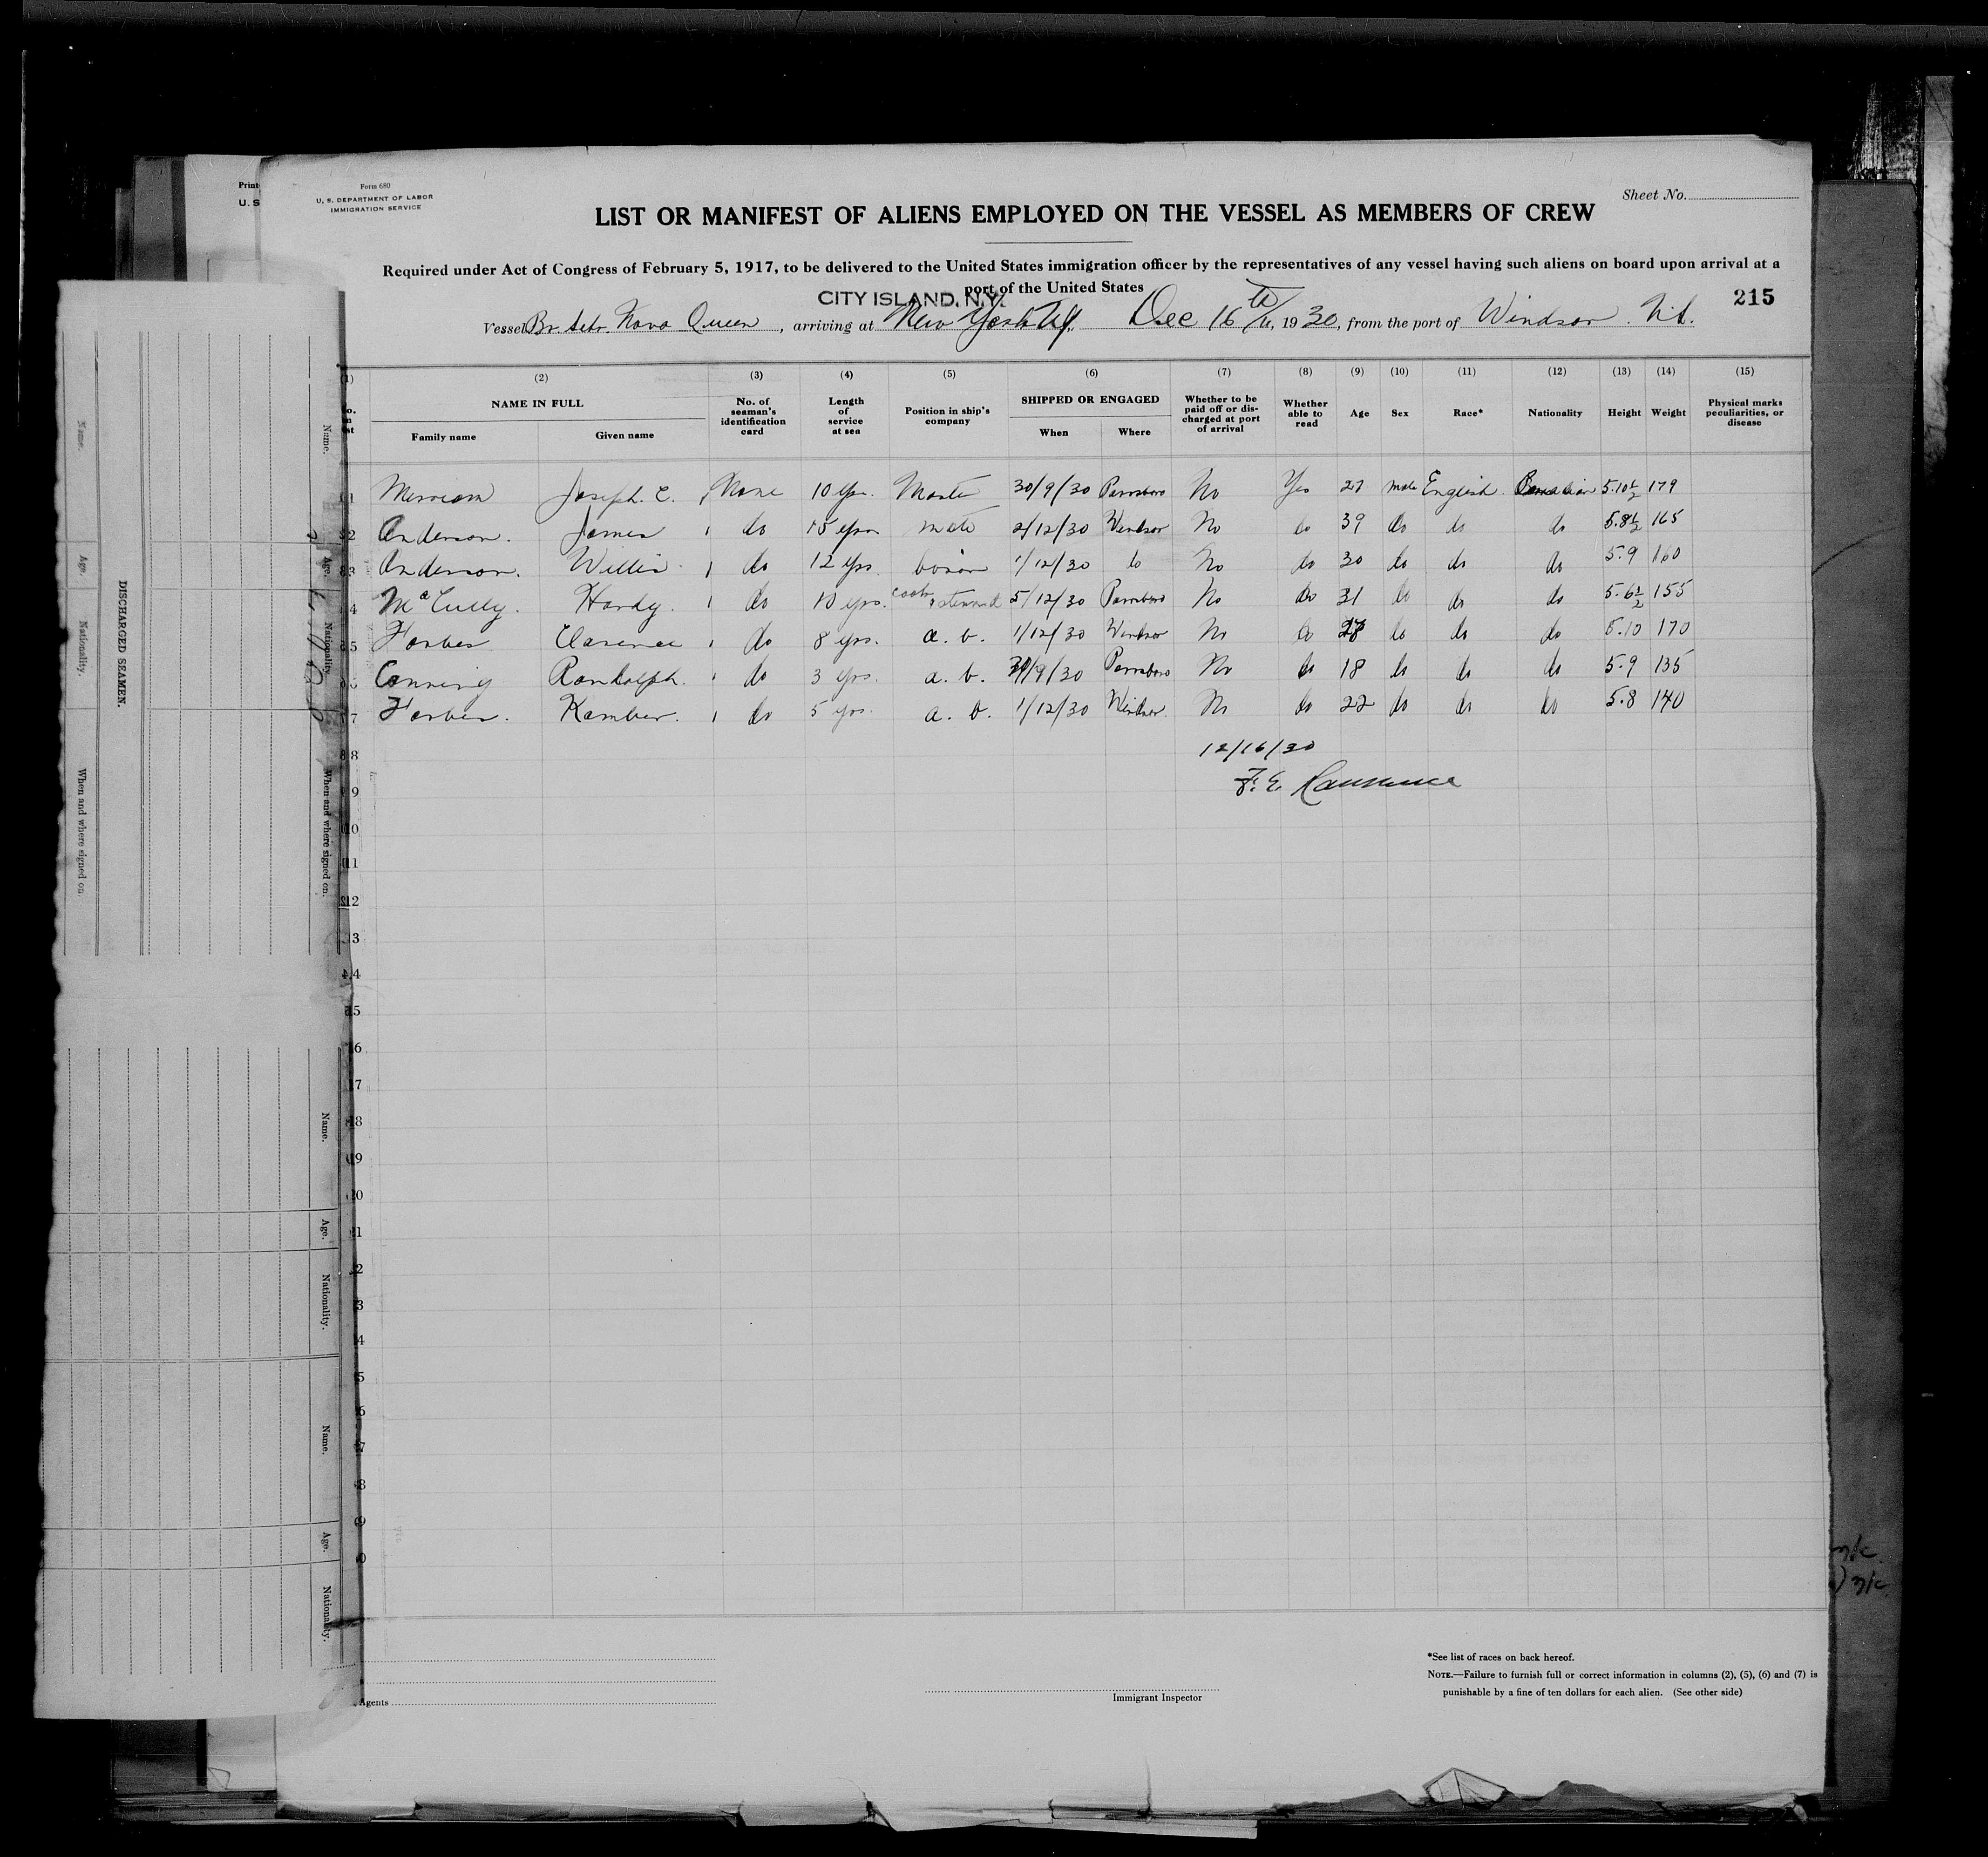 Form 680
U. S. DEPARTMENT OF LABOR
IMMIGRATION SERVICE
Sheet No.
LIST OR MANIFEST OF ALIENS EMPLOYED ON THE VESSEL AS MEMBERS OF CREW
Required under Act of Congress of February 5, 1917, to be delivered to the United States immigration officer by the representatives of any vessel having such aliens on board upon arrival at a
port of the United States
CITY ISLAND, N.Y.
215
Vessel Br Schr Nova Queen, arriving at New York NY. Dec 16th, 1930, from the port of Windsor. N.S.
(1) (2) (3) (4) (5) (6) (7) (8) (9) (10) (11) (12) (13) (14) (15)
NAME IN FULL
Family name Given name
No. of seaman's identification card
Length of service at sea
Position in ship's company
SHIPPED OR ENGAGED
When Where
Whether to be paid off or discharged at port of arrival
Whether able to read
Age
Sex
Race*
Nationality
Height
Weight
Physical marks peculiarities, or disease
1 Merriam Joseph. C. None 10 yrs. Master 30/9/30 Parrsboro No Yes 27 male English Canadian 5.10 1/2 179
2 Anderson. James do 15 yrs mate 2/12/30 Windsor No do 39 do do do 5.8 1/2 165
3 Anderson. Willis do 12 yrs bosun 1/12/30 do No do 30 do do do 5.9 160
4 McCully. Hardy. do 10 yrs. cook & steward 5/12/30 Parrsboro No do 31 do do do 5.6 1/2 155
5 Forbes Clarence do 8 yrs. a. b. 1/12/30 Windsor No do 28 do do do 5.10 170
6 Canning Randolph. do 3 yrs. a. b. /9/30 Parrsboro No do 18 do do do 5.9 135
7 Forbes. Kember. do 5 yrs. a. b. 1/12/30 Windsor. No do 22 do do do 5.8 140
8 12/16/30
9 F. E. Lawrence
10
11
12
13
14
15
16
17
18
19
20
Agents
Immigrant Inspector
*See list of races on back hereof.
NOTE.—Failure to furnish full or correct information in columns (2), (5), (6) and (7) is
punishable by a fine of ten dollars for each alien. (See other side)
DISCHARGED SEAMEN.
Name. Age. Nationality. When and where signed on.
Name. Age. Nationality. When and where signed on.
Name. Age. Nationality.
Name. Age. Nationality.